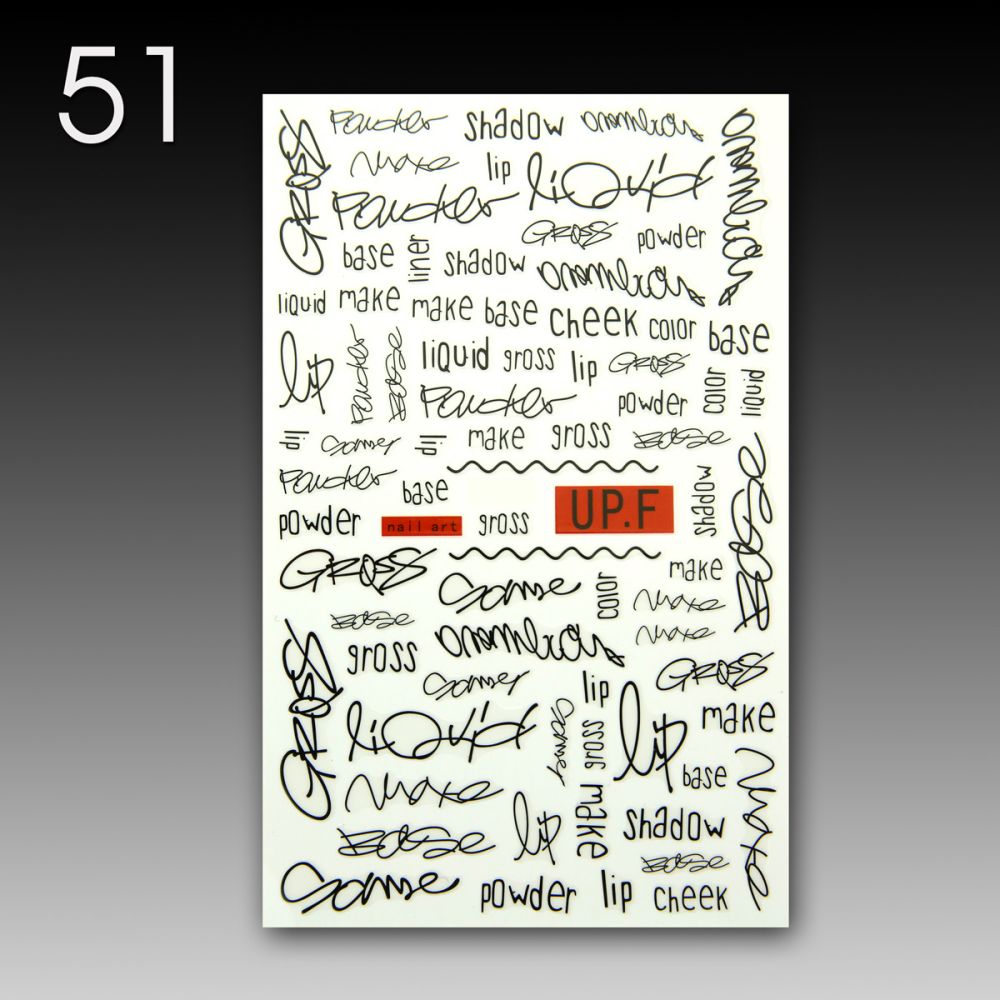 51
GROSS Powder shadow
make lip liquid
Powder GROSS powder
base liner shadow
liquid make make base cheek color base
lip Powder BaSe liquid gross lip GROSS color liquid
Powder powder
lip lip make gross BaSe
Powder base shadow BaSe
powder nail art gross UP.F
GROSS color make
BaSe make
GROSS gross make
GROSS
lip
liquid gross lip make
make base make
lip make shadow
BaSe BaSe
powder lip cheek